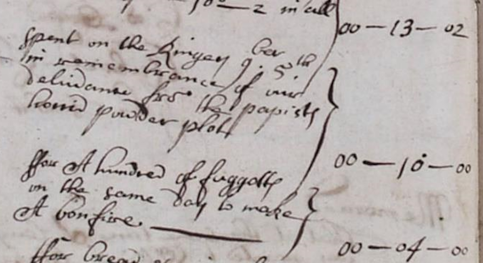 10 - 2 in all
00 — 13 — 02
Spent on the Ringers 9ber 5th
in remembrance of our
deliuance from the papists
horrid powder plot
00 — 10 — 00
ffor A hundred of faggotts
on the same Day to make
A bonfire
00 — 04 — 00
ffor bread